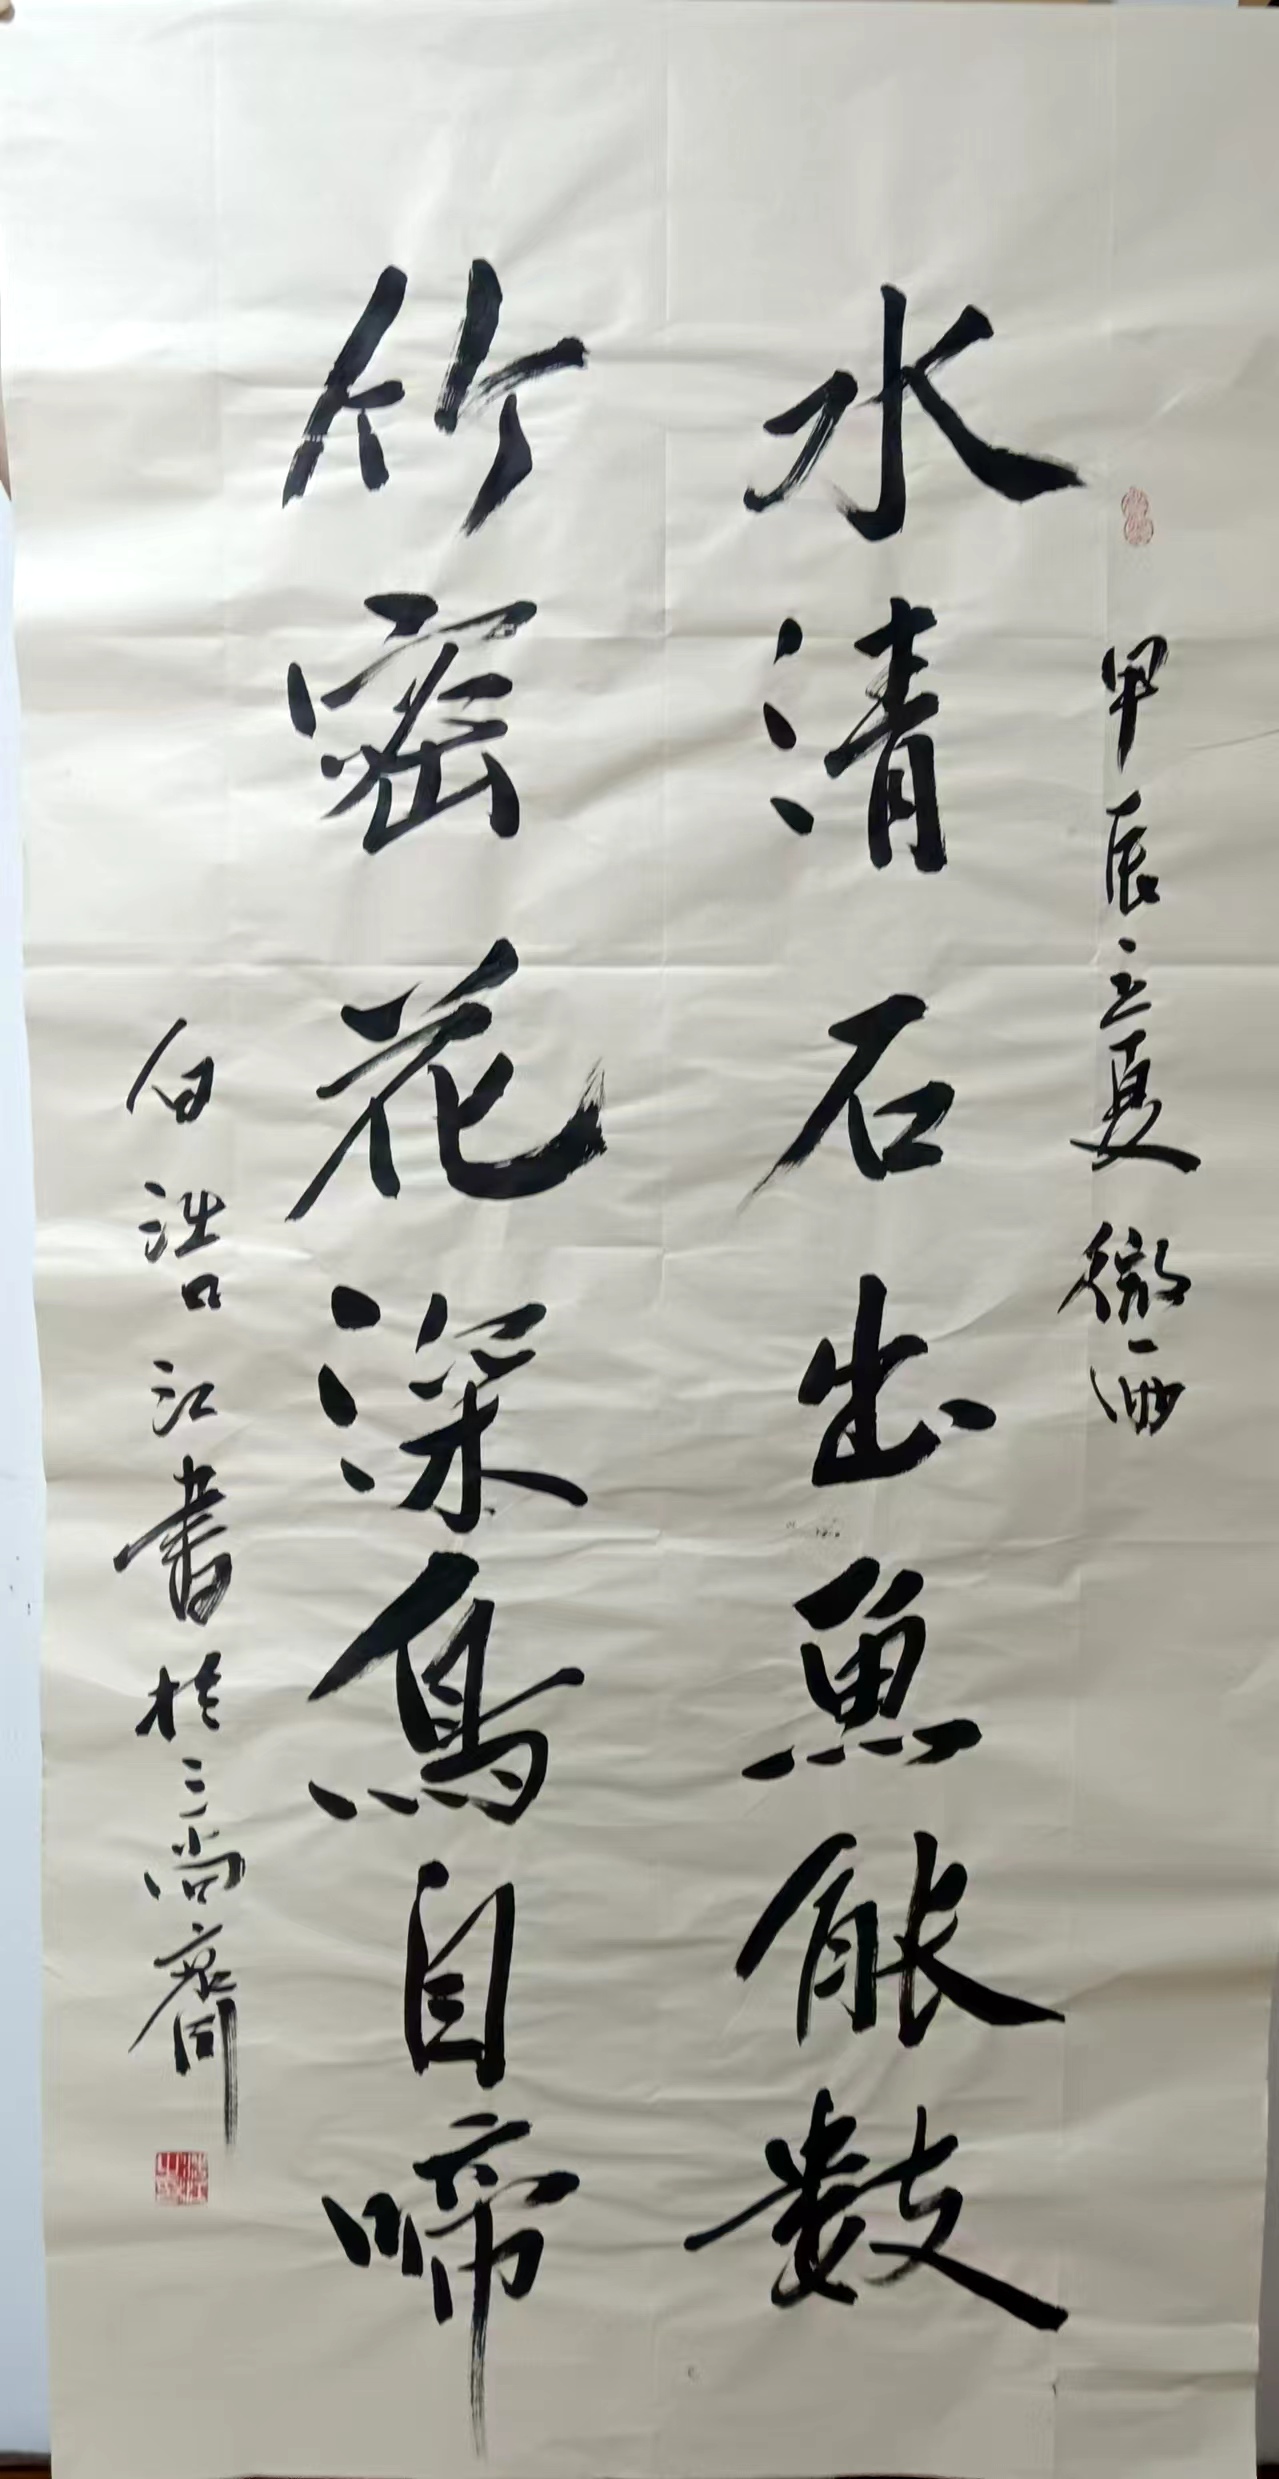 甲辰立夏 微雨
水清石出魚能數
竹密花深鳥自啼
白浩江書於三尚齋